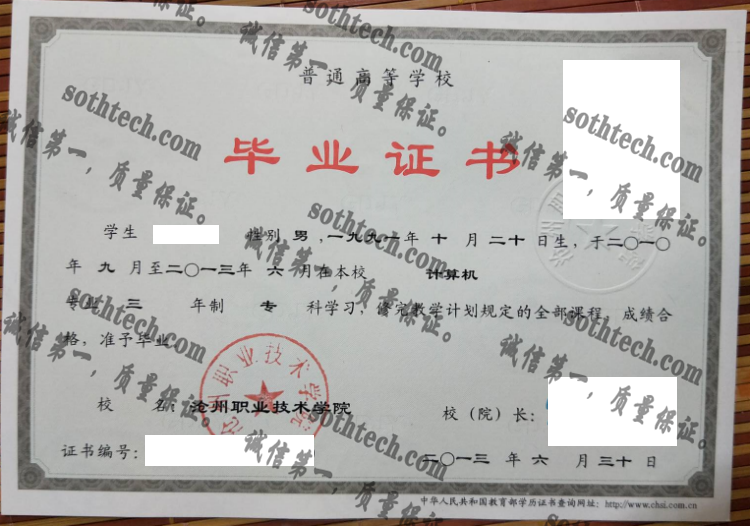 普通高等学校
毕业证书
学生 性别 男 ,一九九一年 十 月 二十 日生，于二〇一〇
年 九 月至二〇一三年 六 月在本校 计算机
专业 三 年制 专 科学习，修完教学计划规定的全部课程，成绩合
格，准予毕业
校 名：沧州职业技术学院
校（院）长：
证书编号：
二〇一三 年 六 月 三十 日
中华人民共和国教育部学历证书查询网址：http://www.chsi.com.cn
沧州职业技术学院
sothtech.com
诚信第一，质量保证。
sothtech.com
诚信第一，质量保证。
sothtech.com
诚信第一，质量保证。
sothtech.com
诚信第一，质量保证。
sothtech.com
诚信第一，质量保证。
sothtech.com
诚信第一，质量保证。
sothtech.com
诚信第一，质量保证。